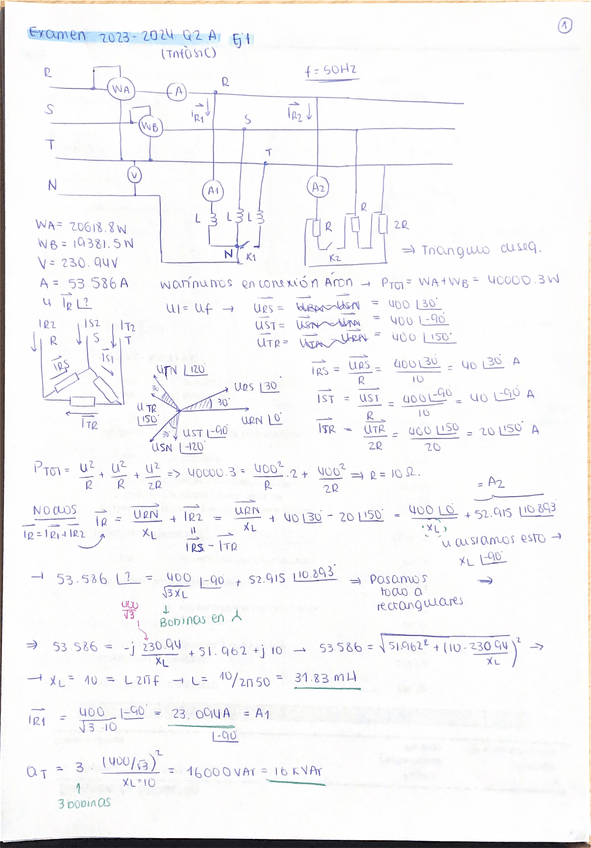 1
Examen 2023-2024 Q2 A Ej1
(TRIFÁSIC)
f = 50Hz
R
WA
A
R
IR1
IR2
S
WB
S
T
T
V
N
A1
A2
L L L
R R 2R
N K1
K2
⇒ Triangulo deseq.
WA = 20618.8W
WB = 19381.5W
V = 230.94V
A = 53.586A
watímetros en conexión Aron → PTOT = WA + WB = 40000.3W
Ul = Uf → URS = = 400 ∠30°
UST = = 400 ∠-90°
UTR = = 400 ∠150°
IR2 IS2 IT2
R S T
IRS IST
ITR
UTN ∠120°
URS ∠30°
30°
URN ∠0°
UTR ∠150°
UST ∠-90°
USN ∠-120°
IRS = URS/R = 400∠30/10 = 40 ∠30° A
IST = UST/R = 400∠-90/10 = 40 ∠-90° A
ITR = UTR/2R = 400∠150/20 = 20 ∠150° A
PTOT = U²/R + U²/R + U²/2R => 40000.3 = 400²/R · 2 + 400²/2R ⇒ R = 10 Ω.
= A2
NODOS
IR = IR1 + IR2
IR = URN/XL + IR2 = URN/XL + 40∠30 - 20∠150° = 400∠0°/XL + 52.915 ∠10.893
IRS - ITR
esto →
XL ∠-90
→ 53.586 ∠? = 400/√3XL ∠-90 + 52.915 ∠10.893° ⇒ Pasamos todo a rectangulares ⇒
400/√3
Bobinas en
⇒ 53.586 = -j 230.94/XL + 51.962 + j10 → 53.586 = √51.962² + (10 - 230.94/XL)² →
→ XL = 10 = L2πf → L = 10/2π50 = 31.83 mH
IR1 = 400/√3·10 ∠-90° = 23.094A = A1
∠-90
QT = 3 · (400/√3)²/XL=10 = 16000VAr = 16 kVAr
3 bobinas